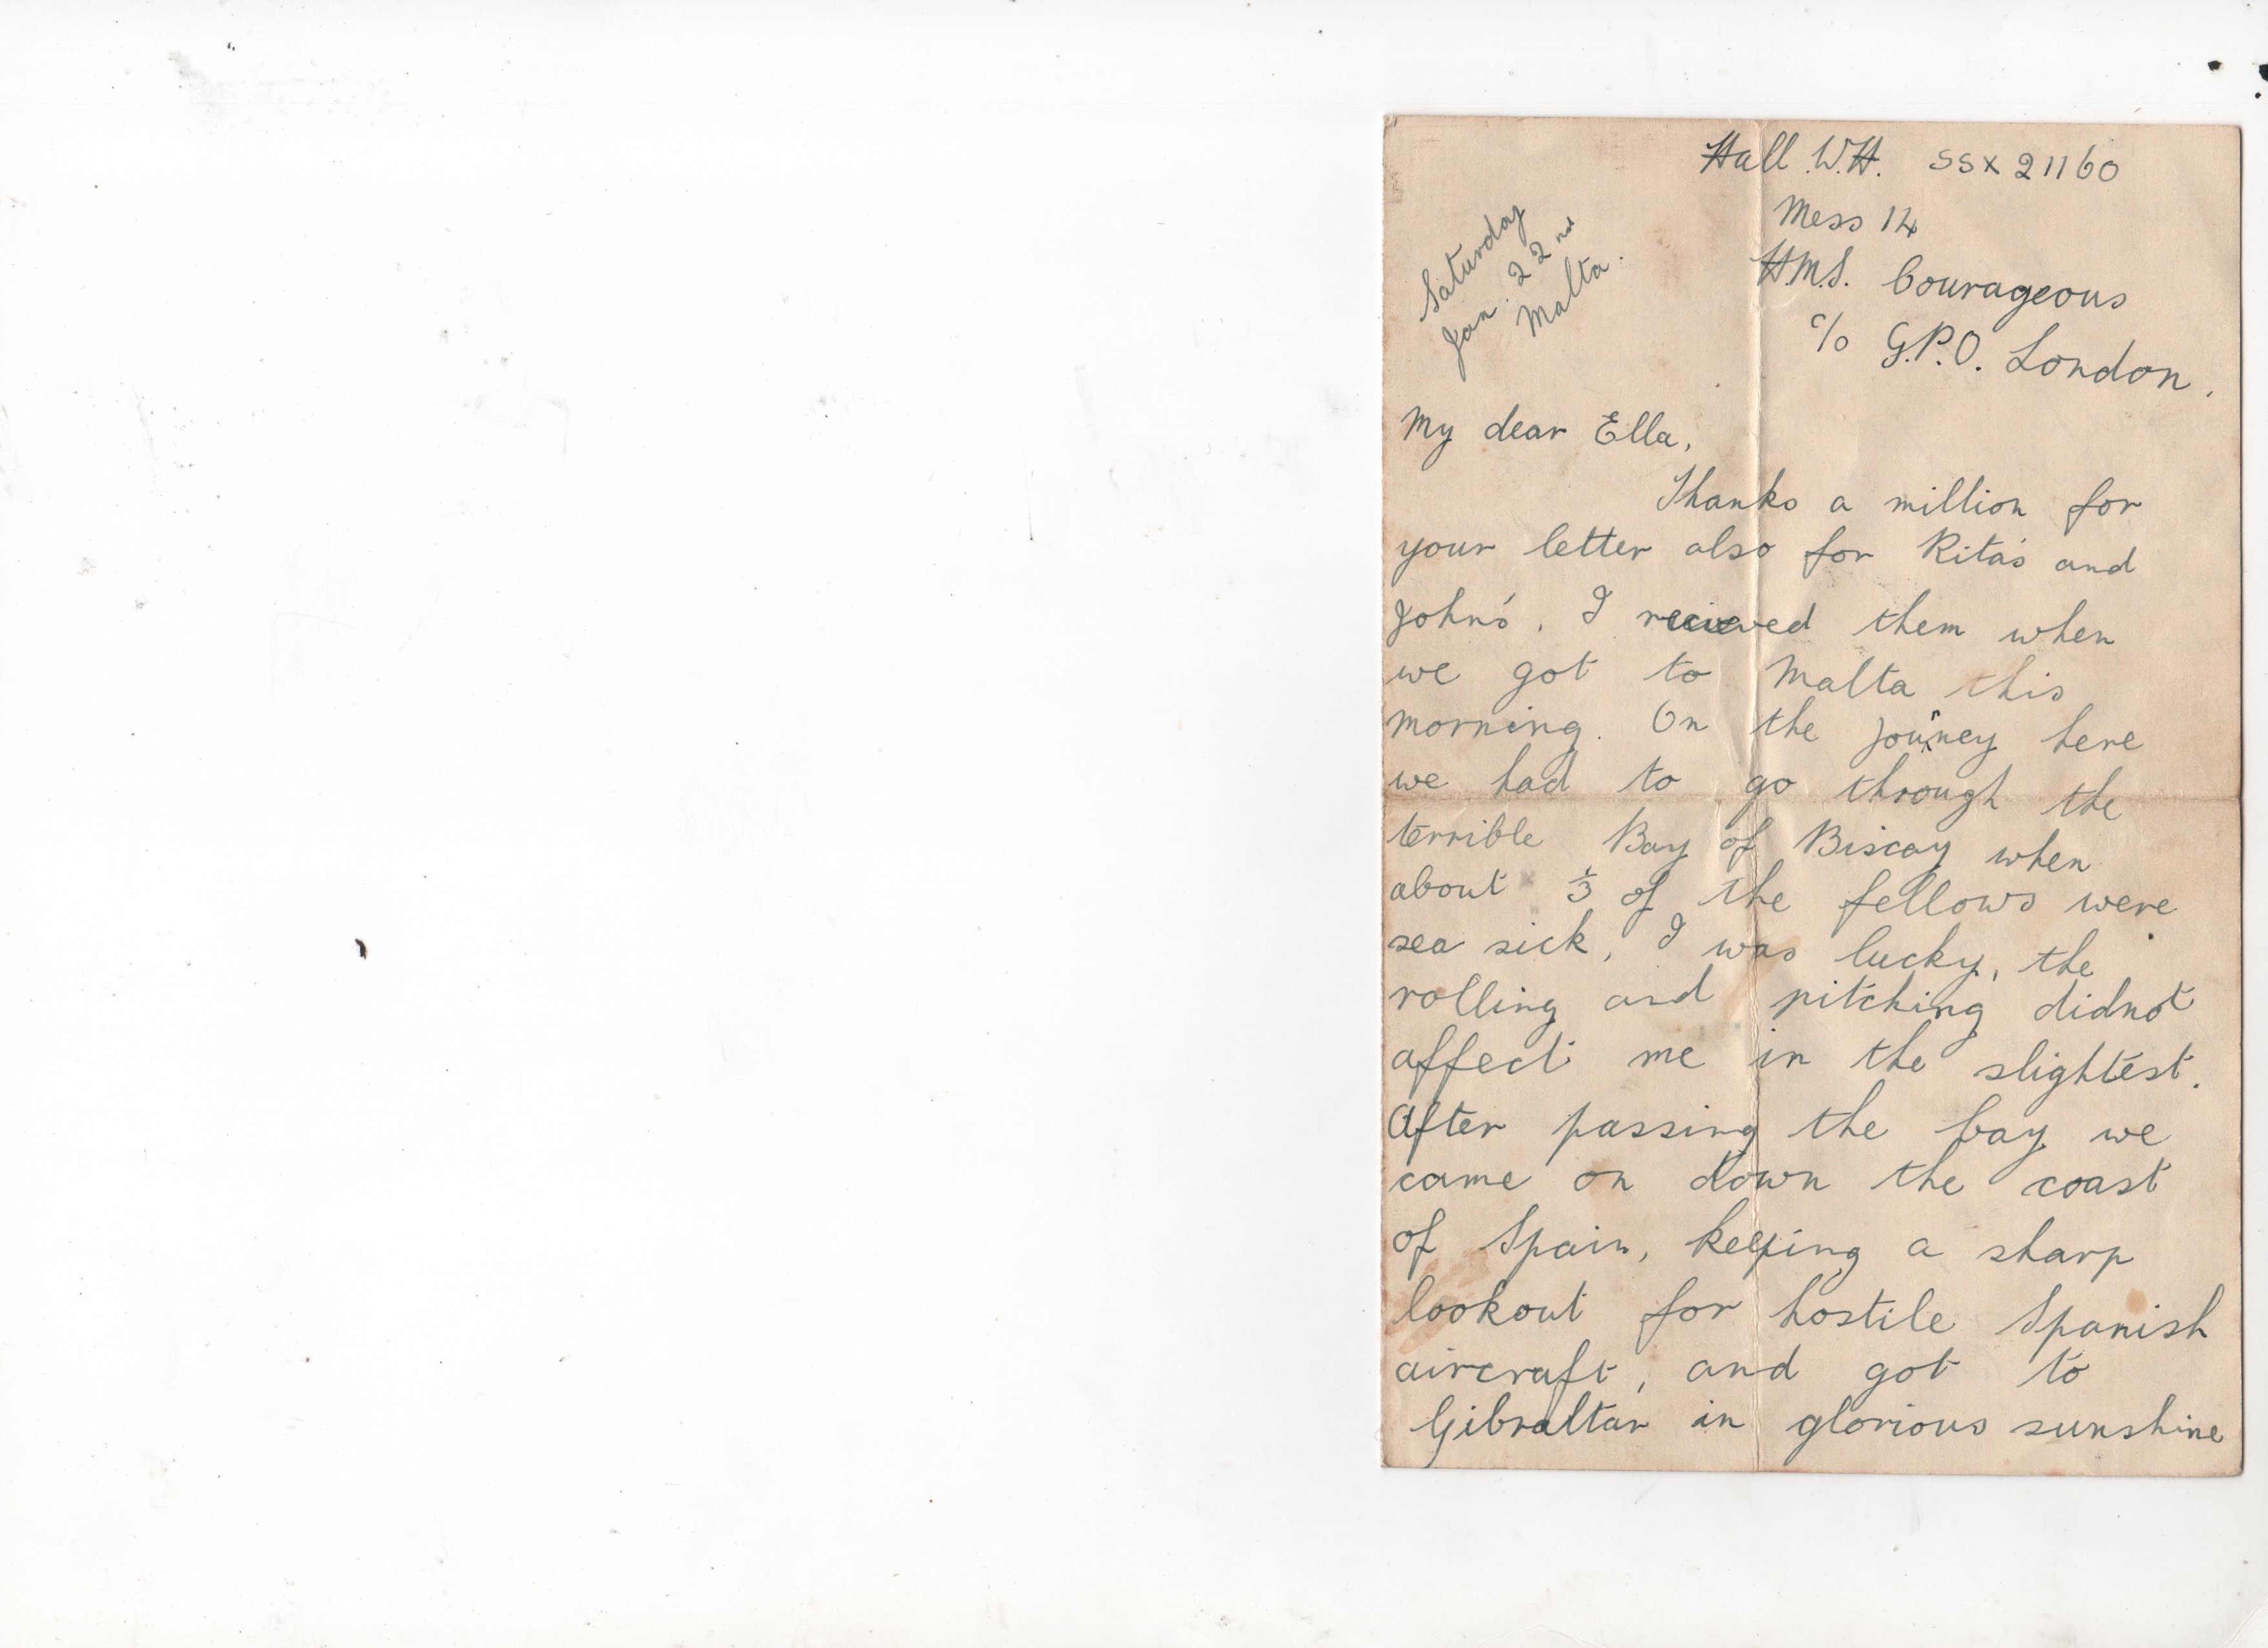 Hall W.H. SSX 21160
Mess 14
H.M.S. Courageous
c/o G.P.O. London.
Saturday
Jan. 22nd
Malta.
My dear Ella,
Thanks a million for
your letter also for Rita's and
John's. I recieved them when
we got to Malta this
morning. On the journey here
we had to go through the
terrible Bay of Biscay when
about 1/3 of the fellows were
sea sick, I was lucky, the
rolling and pitching didnot
affect me in the slightest.
After passing the bay we
came on down the coast
of Spain, keeping a sharp
lookout for hostile Spanish
aircraft, and got to
Gibraltar in glorious sunshine